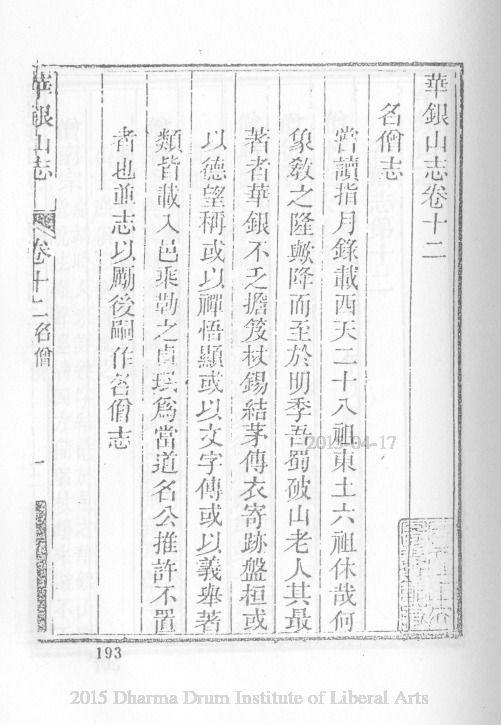 華銀山志卷十二
名僧志
甞讀指月錄載西天二十八祖東土六祖休哉何
象教之隆歟降而至於明季吾蜀破山老人其最
著者華銀不乏擔笈杖錫結茅傳衣寄跡盤桓或
以德望稱或以禪悟顯或以文字傳或以義舉著
類皆載入邑乘勒之貞珉爲當道名公推許不置
者也並志以勵後嗣作名僧志
華銀山志
卷十二名僧
一
2015-04-17
193
2015 Dharma Drum Institute of Liberal Arts